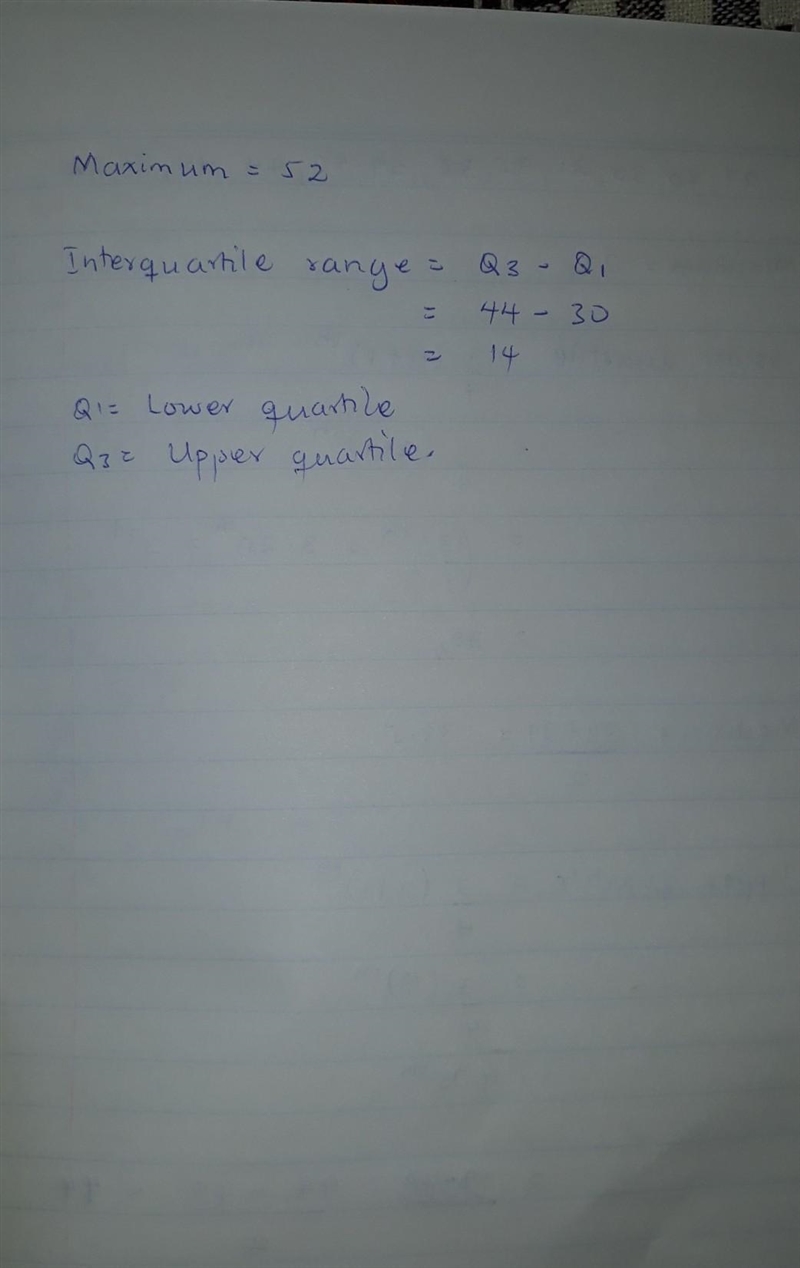 Maximum = 52
Interquartile range = Q3 - Q1
= 44 - 30
= 14
Q1 = Lower quartile
Q3 = Upper quartile.